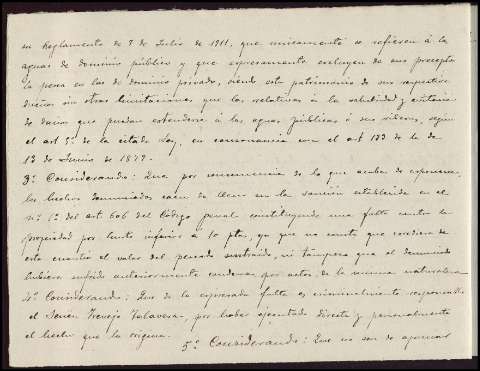 su Reglamento de 7 de Julio de 1911, que unicamente se refieren á la
aguas de dominio público y que expresamente excluyen de sus precepto
la pesca en las de dominio privado, siendo este patrimonio de sus respectivos
dueños sin otras limitaciones que las relativas á la salubridad y evitación
de daños que puedan extenderse á las aguas públicas ó sus videros, según
el art 5º de la citada Ley, en consonancia con el art 133 de la de
13 de Junio de 1879.
3º Considerando: Que por consecuencia de lo que acaba de exponerse,
los hechos denunciados caen de lleno en la sanción establecida en el
nº 1º del art 606 del Código penal constituyendo una falta contra la
propiedad por hurto inferior á 10 ptas, ya que no consta que excediera de
esta cuantía el valor del pescado sustraido, ni tampoco que el denunciado
hubiera sufrido anteriormente condenas por actos de la misma naturaleza
4º Considerando: Que de la expresada falta es criminalmente responsable
el Trevejo Talavera, por haber ejecutado directa y personalmente
el hecho que la origina.
5º Considerando: Que no son de apreciar